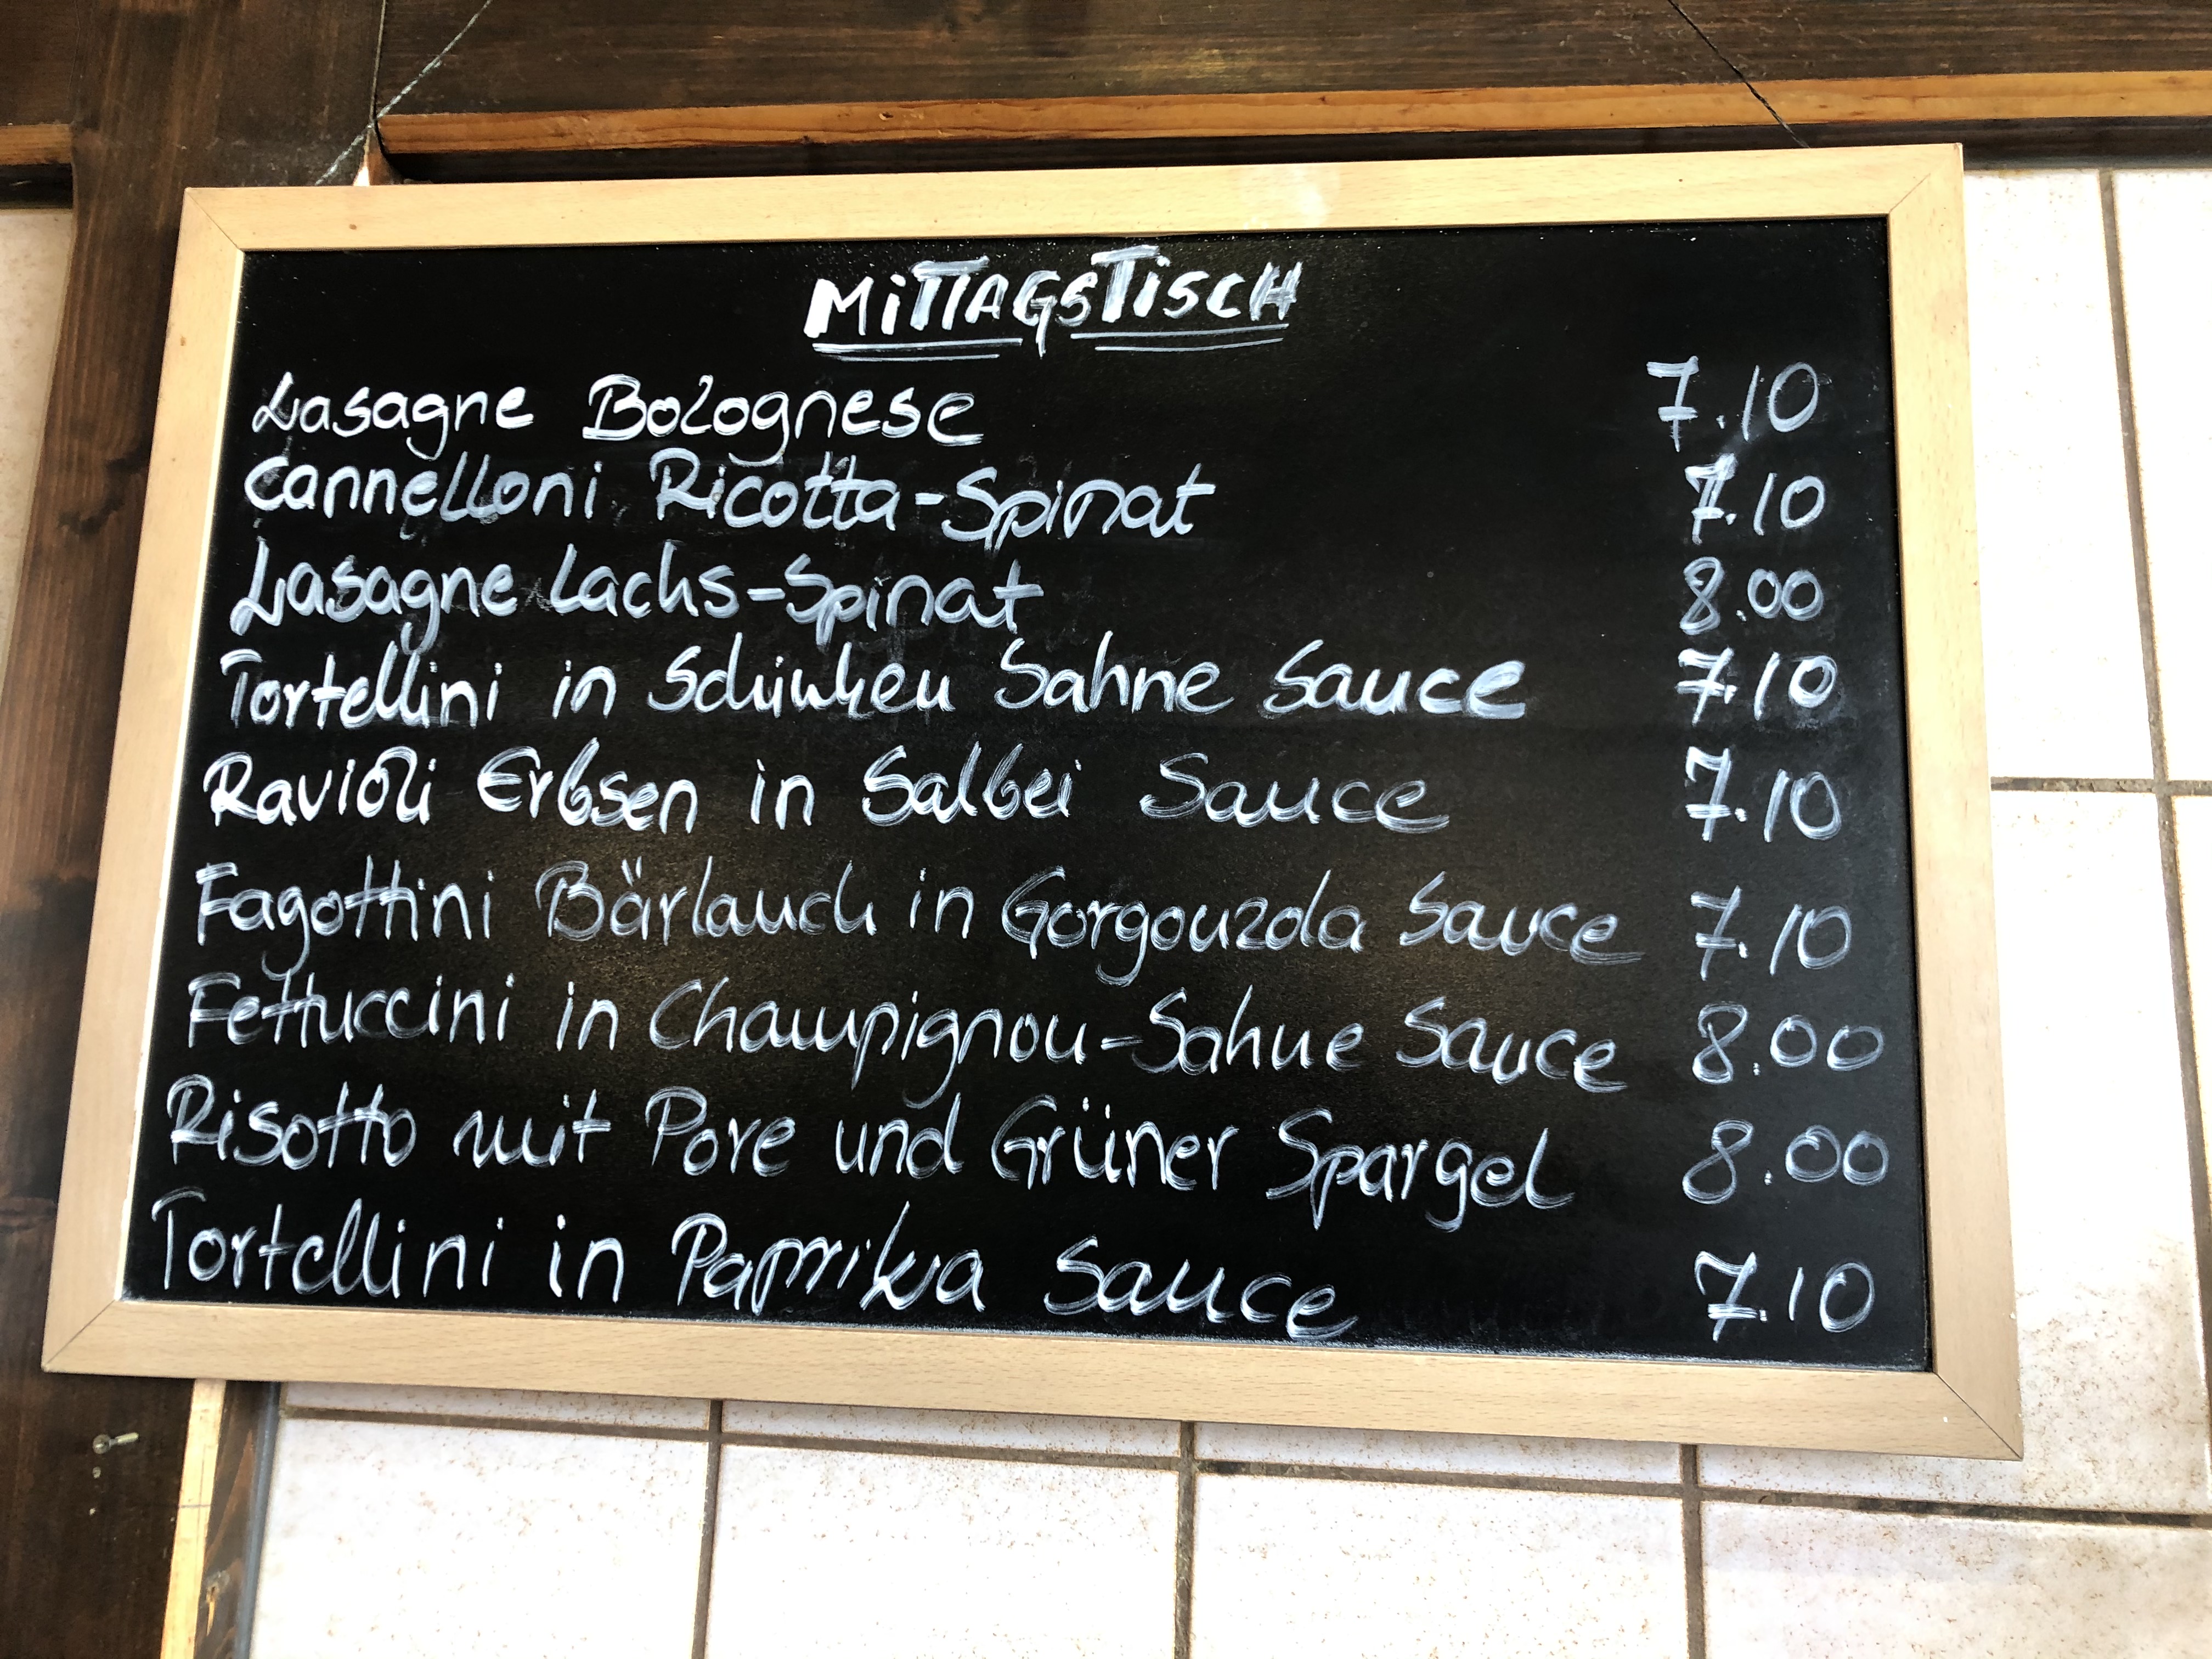 MiTTAGSTiSCH
Lasagne Bolognese 7.10
Cannelloni Ricotta-Spinat 7.10
Lasagne Lachs-Spinat 8.00
Tortellini in Schinken Sahne Sauce 7.10
Ravioli Erbsen in Salbei Sauce 7.10
Fagottini Bärlauch in Gorgonzola Sauce 7.10
Fettuccini in Champignon-Sahne Sauce 8.00
Risotto mit Pore und Grüner Spargel 8.00
Tortellini in Paprika Sauce 7.10